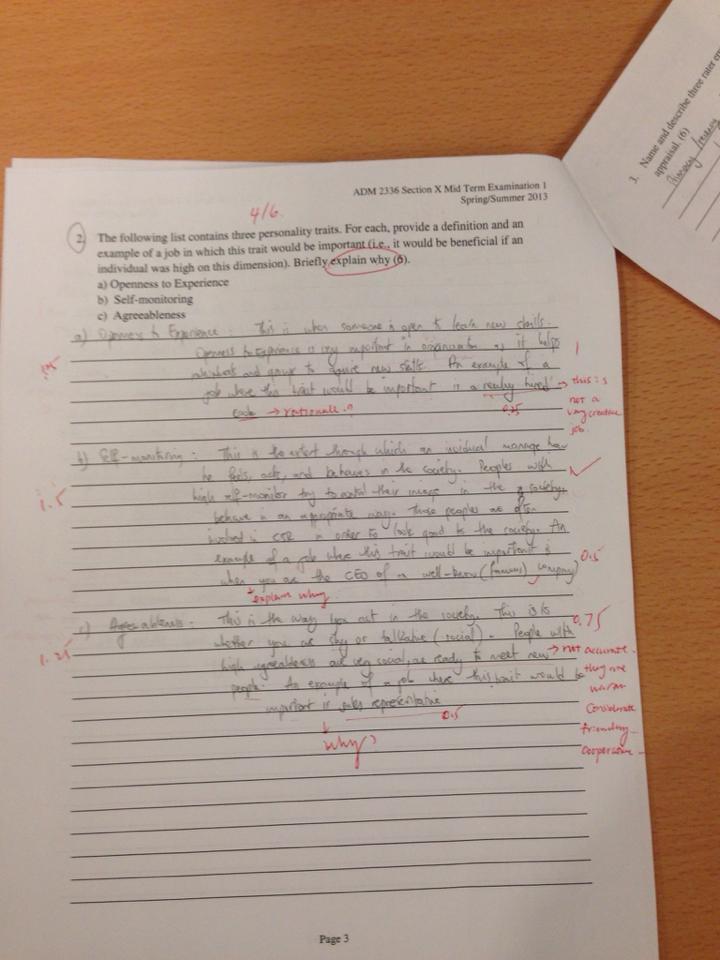 ADM 2336 Section X Mid Term Examination 1
Spring/Summer 2013
4/6
2. The following list contains three personality traits. For each, provide a definition and an
example of a job in which this trait would be important (i.e., it would be beneficial if an
individual was high on this dimension). Briefly explain why (6).
a) Openness to Experience
b) Self-monitoring
c) Agreeableness
a) Openness to Experience : This is when someone is open to learn new skills.
Openness to experience is very important in organization as it helps
and to acquire new skills. An example of a 1
job where this trait would be important is a newly hired → this is
→ rationale? 0.25 not a
very creative
job.
b) Self-monitoring : This is the extent through which an individual manage how
he feels, acts, and behaves in the society. Peoples with
high self-monitor try to their image in the society,
1.5
behave in an appropriate way. These peoples are often
involved in CSR in order to look good to the society. An
example of a job where this trait would be important is
when you are the CEO of a well-known (famous) company 0.5
explain why
c) Agreeableness : This is the way you act in the society. This is 0.75
whether you are shy or talkative (social). People with
1.25
high agreeableness are very social, are ready to meet new → not accurate.
people. An example of a job where this trait would be they are
important is sales representative warm
0.5 considerate
why? friendly
cooperative
Page 3
3. Name and describe three rater
appraisal. (6)